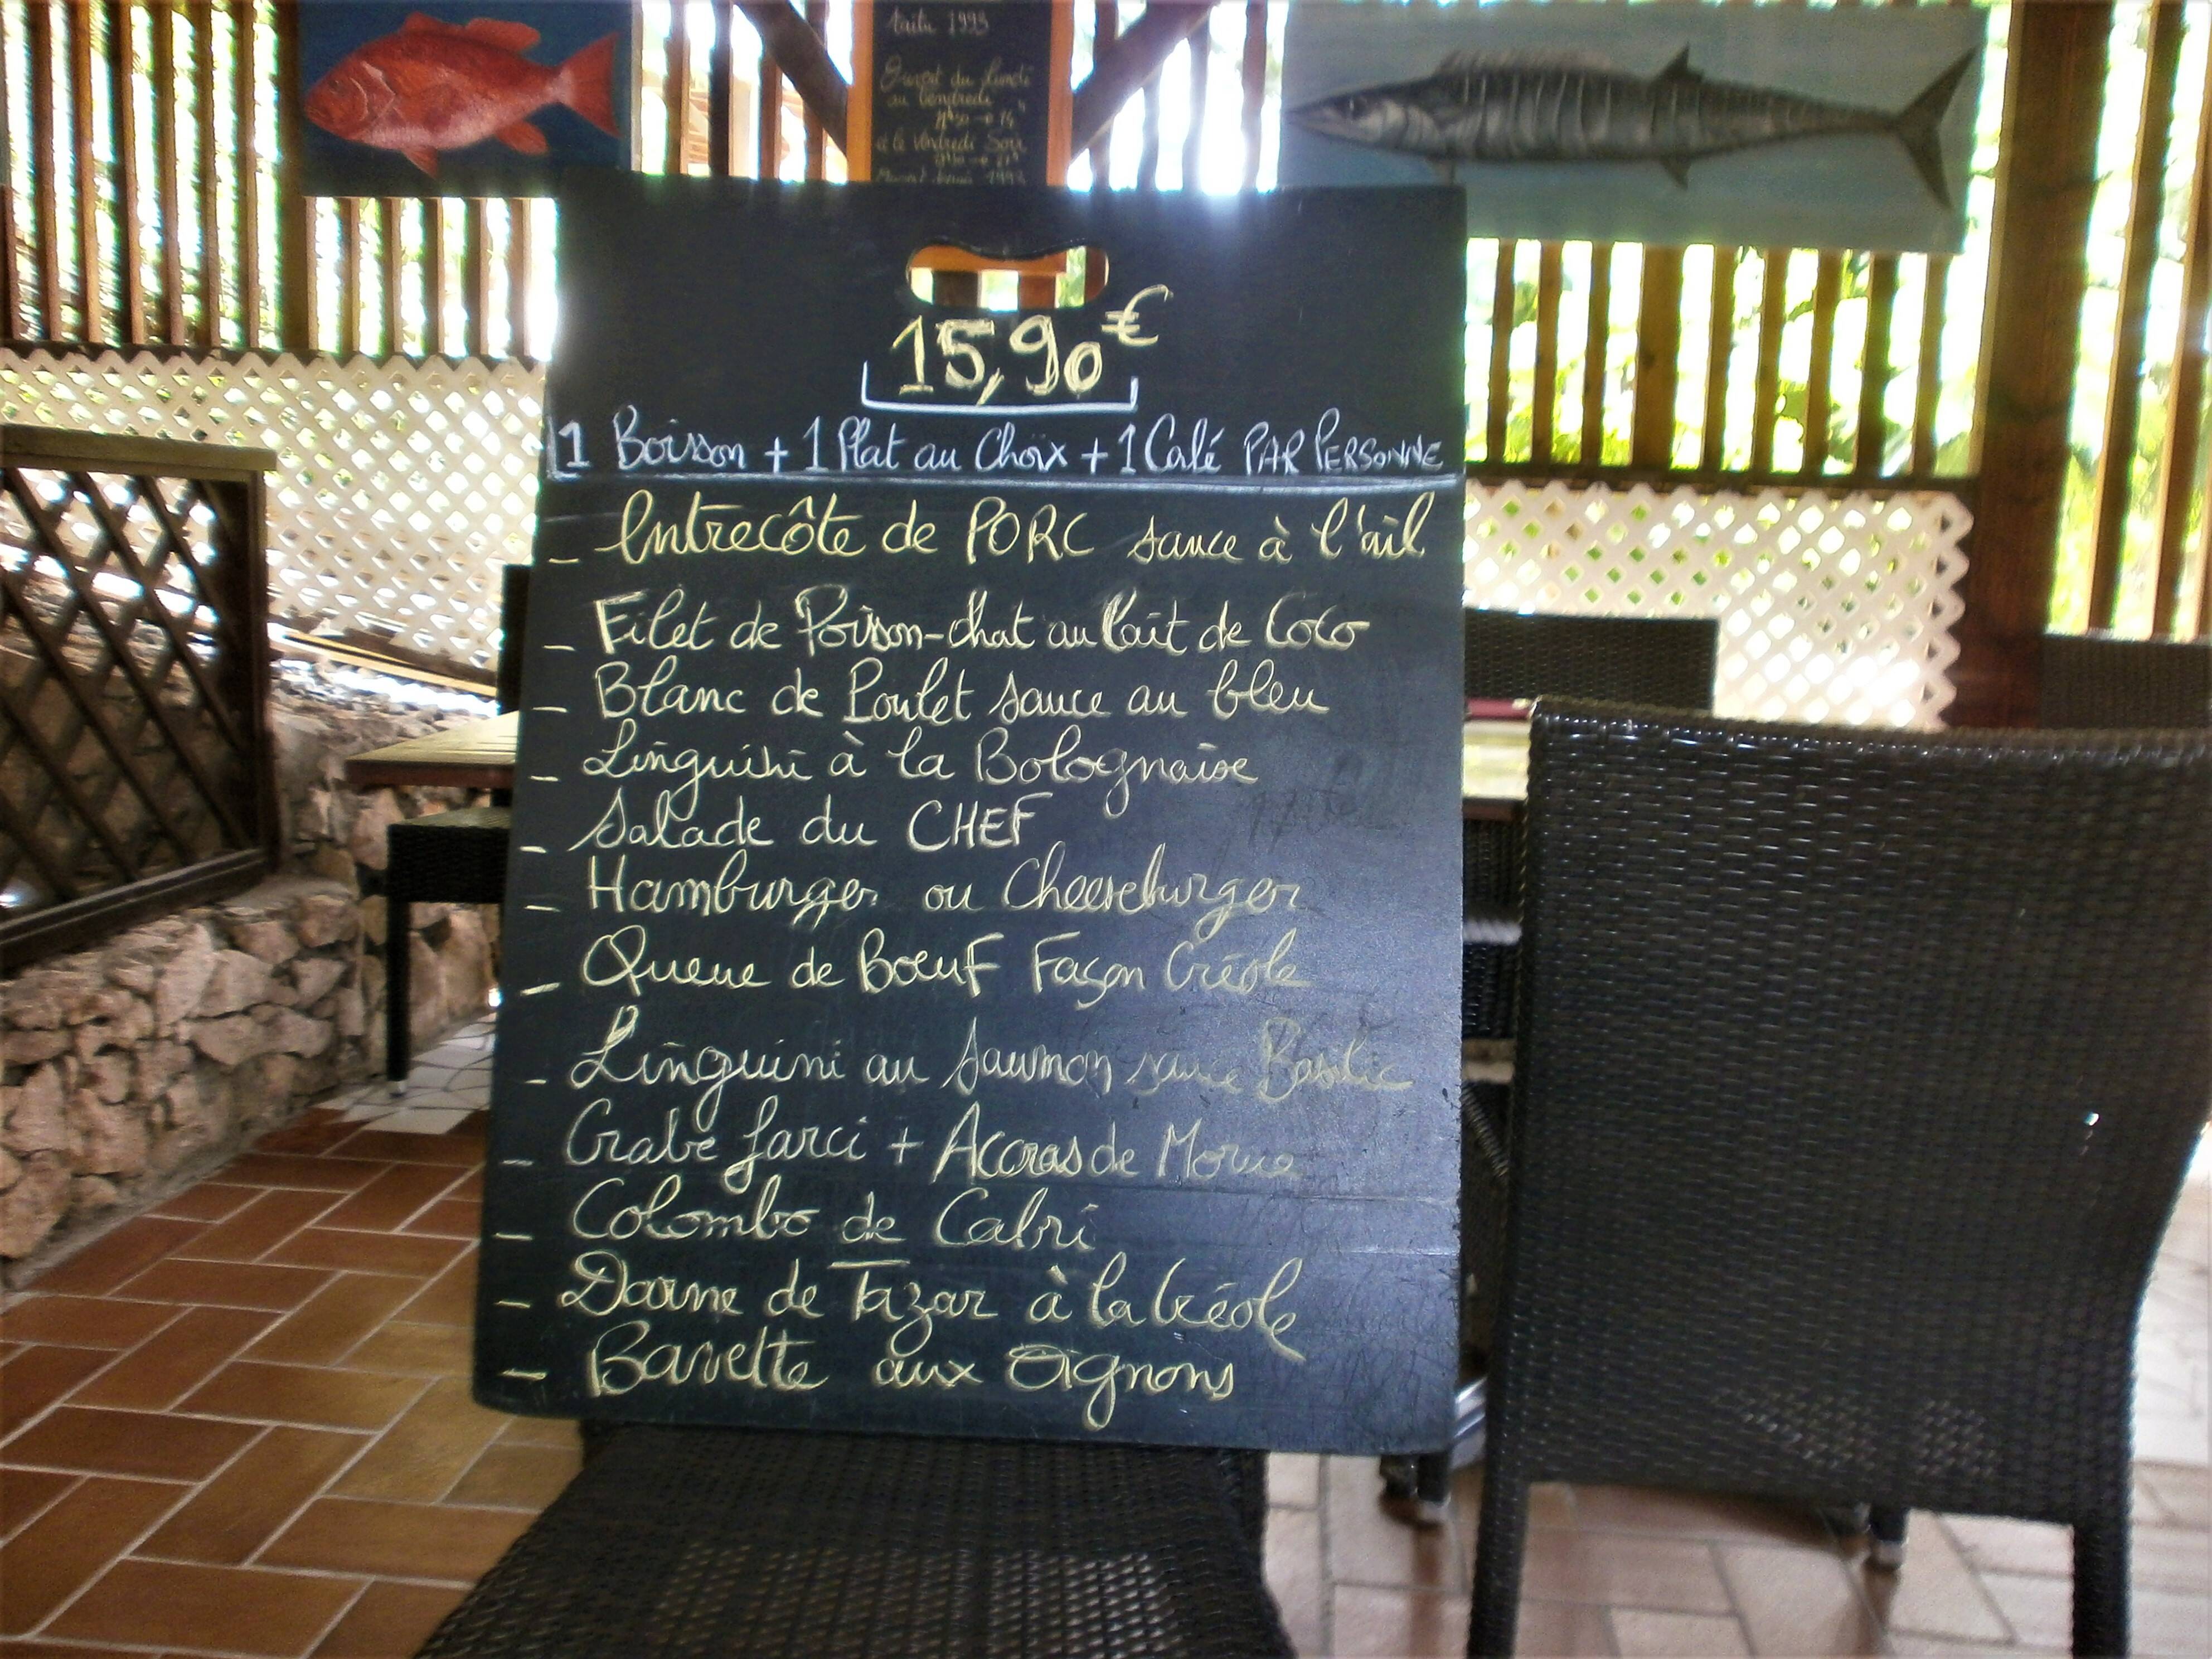 taitu 1993
Ouvert du lundi
au Vendredi
et le Vendredi Soir
1993
15,90€
1 Boisson + 1 Plat au Choix + 1 Café PAR PERSONNE
- Entrecôte de PORC sauce à l'ail
- Filet de Poisson-chat au lait de Coco
- Blanc de Poulet sauce au bleu
- Linguini à la Bolognaise
- Salade du CHEF
- Hamburger ou Cheeseburger
- Queue de Boeuf Façon Créole
- Linguini au Saumon sauce Basilic
- Crabe farci + Accras de Morue
- Colombo de Cabri
- Darne de Tazar à la Créole
- Bavette aux Oignons